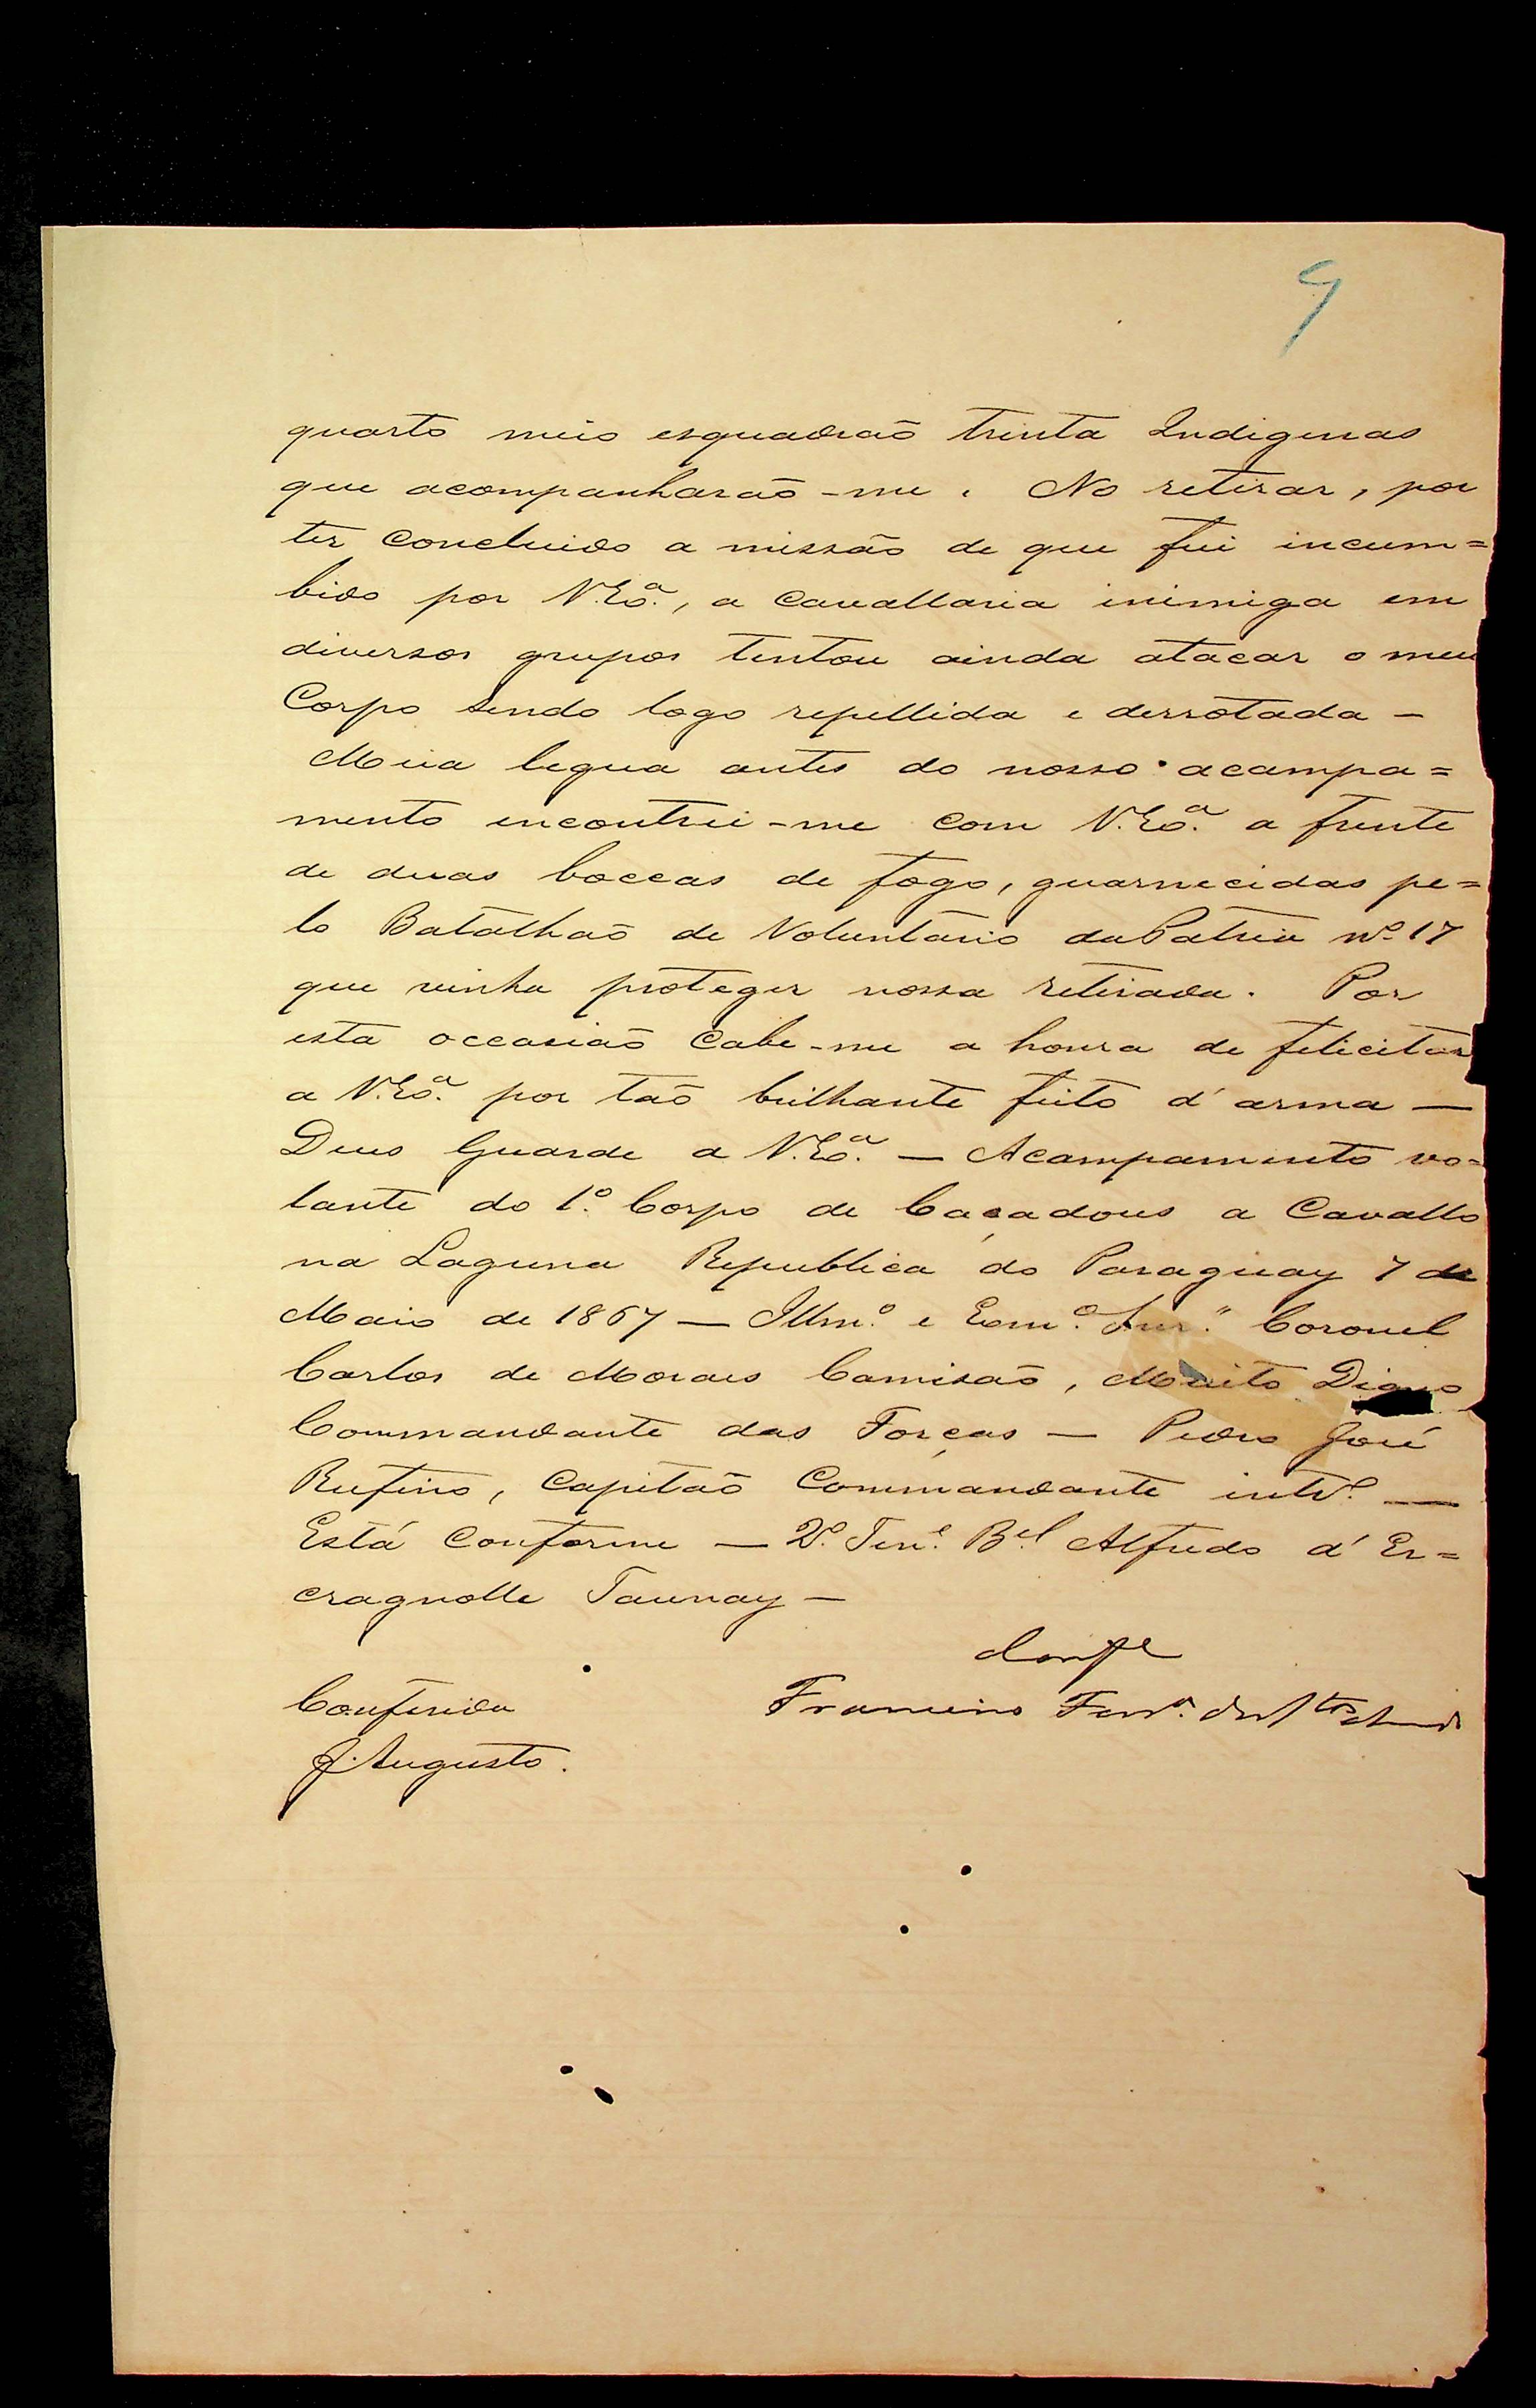 9
quarto meio esquadraõ trinta Indigenas
que acompanharaõ-me. No retirar, por
ter concluido a missão de que fui incum=
bido por V.Exª., a Cavallaria inimiga em
diversos grupos tentou ainda atacar o meu
Corpo sendo logo repellida e derrotada —
Meia legua antes do nosso acampa=
mento encontrei-me com V.Exª. a frente
de duas boccas de fogo, guarnecidas pe=
lo Batalhaõ de Voluntario da Patria nº 17
que vinha proteger nossa retirada. Por
esta occasiaõ cabe-me a honra de felicitar
a V.Exª. por taõ brilhante feito d'arma —
Deus Guarde a V.Exª. — Acampamento vo=
lante do 1º. Corpo de Caçadores a Cavallo
na Laguna Republica do Paraguay 7 de
Maio de 1867 — Illmº. e Exmº. Snr. Coronel
Carlos de Moraes Camisaõ, Muito Digno
Commandante das Forças — Pedro José
Rufino, Capitaõ Commandante intº. —
Está Conforme — 2º. Tenᵉ. Bᵉˡ Alfredo d'Es=
cragnolle Taunay —
Confe
Conferida
Francisco
J. Augusto.